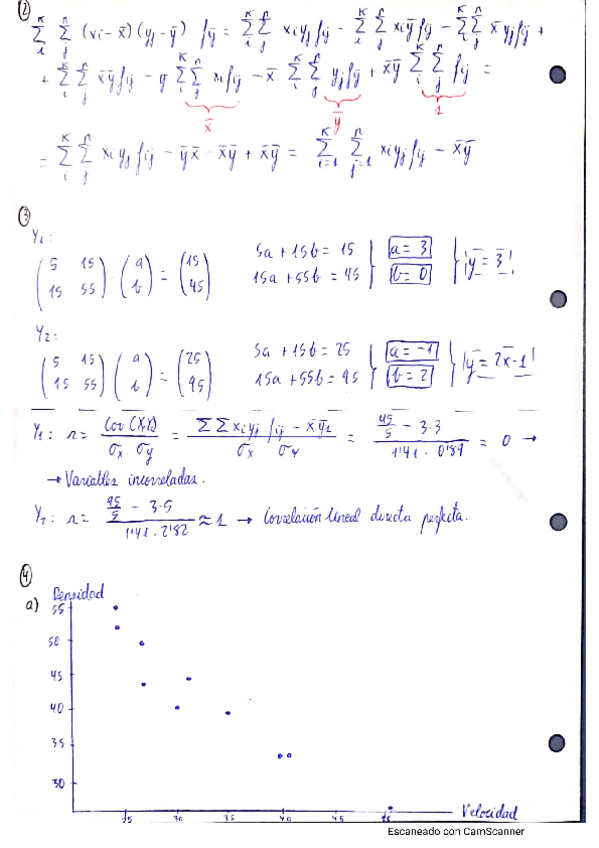 ②
∑ᵢᴷ ∑ⱼⁿ (xi - x̄)(yj - ȳ) fij = ∑ᵢᴷ∑ⱼⁿ xi yj fij - ∑ᵢᴷ∑ⱼⁿ xi ȳ fij - ∑ᵢᴷ∑ⱼⁿ x̄ yj fij +
+ ∑ᵢᴷ∑ⱼⁿ x̄ȳ fij - ȳ ∑ᵢᴷ∑ⱼⁿ xi fij - x̄ ∑ᵢᴷ∑ⱼⁿ yj fij + x̄ȳ ∑ᵢᴷ∑ⱼⁿ fij =
x̄ ȳ 1
= ∑ᵢᴷ∑ⱼⁿ xi yj fij - ȳx̄ - x̄ȳ + x̄ȳ = ∑ᵢ₌₁ᴷ ∑ⱼ₌₁ⁿ xi yj fij - x̄ȳ
③
Y₁:
(5 15) (a) (15) 5a + 15b = 15 } a = 3 } ¡y = 3!
(15 55) · (b) = (45) 15a + 55b = 45 } b = 0
Y₂:
(5 15) (a) (25) 5a + 15b = 25 } a = -1 } ¡y = 2x-1!
(15 55) (b) = (95) 15a + 55b = 95 } b = 2
Y₁: r = Cov(X,Y) / σx σy = (∑∑ xi yj fij - x̄ȳ₁) / (σx σy) = (45/5 - 3·3) / (1'41 · 0'89) = 0 →
→ Variables incorreladas.
Y₂: r = (95/5 - 3·5) / (1'41 · 2'82) ≈ 1 → Correlación lineal directa perfecta.
④
a) Densidad
55
50
45
40
35
30
25 30 35 40 45 50
Velocidad
Escaneado con CamScanner